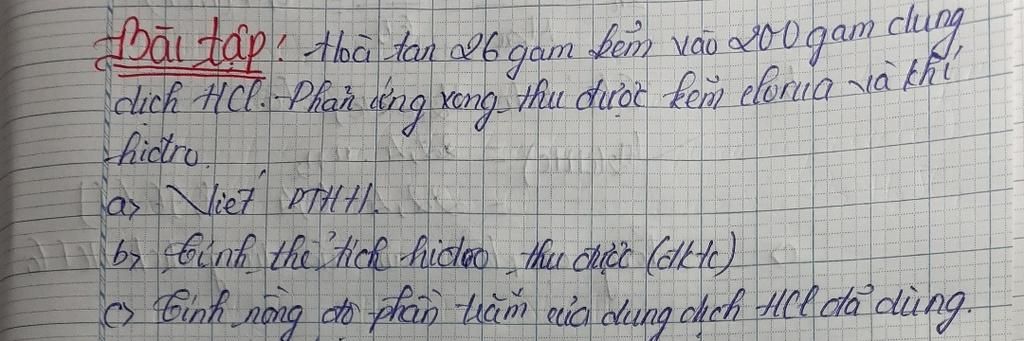 Bài tập: Hoà tan 26 gam kẽm vào 200 gam dung
dịch HCl. Phản ứng xong thu được kẽm clorua và khí
hiđro.
a> Viết PTHH.
b> Tính thể tích hiđro thu được (đktc)
c> Tính nồng độ phần trăm của dung dịch HCl đã dùng.